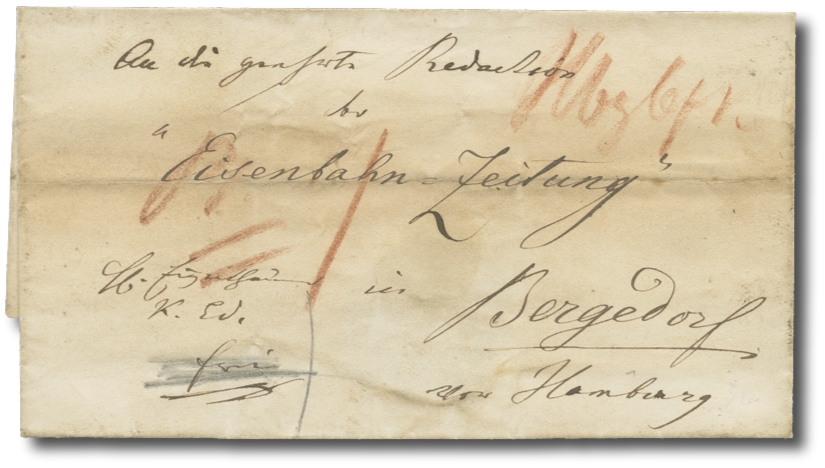 An die geehrte Redaction
der
„Eisenbahn-Zeitung"
in
Bergedorf
vor Hamburg
K. Ed.
frei